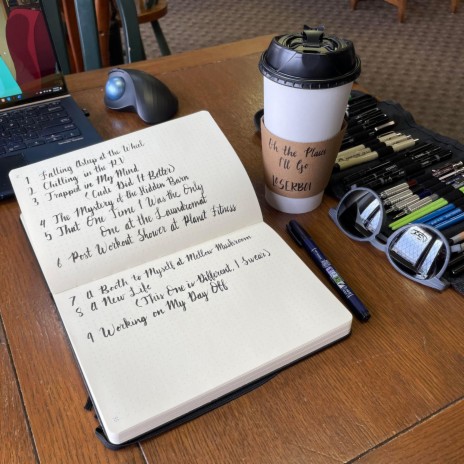 1 Falling Asleep at the Wheel
2 Chilling in the RV
3 Trapped in My Mind
(Cude Did It Better)
4 The Mystery of the Hidden Barn
5 That One Time I Was the Only
One at the Laundromat
6 Post Workout Shower at Planet Fitness
7 A Booth to Myself at Mellow Mushroom
8 A New Life
(This One is Different, I Swear)
9 Working on My Day Off
Oh the Places
I'll Go